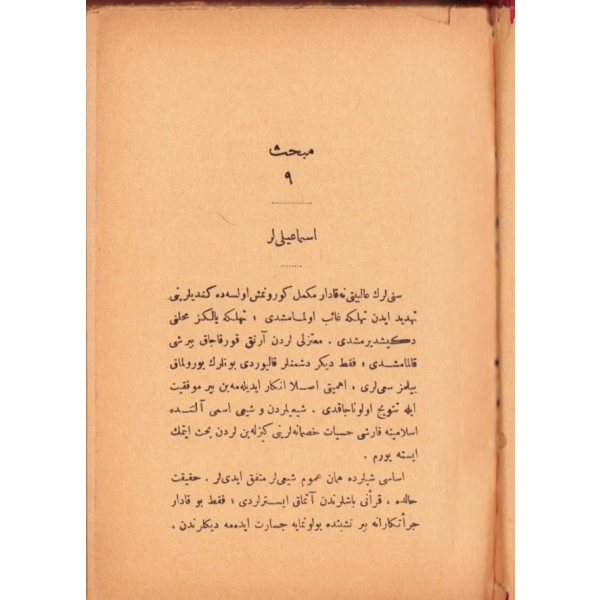 مبحث
٩
اسماعیلی لر
سنی لرك غالبیتی نه قادار مكمل كورونمش اولسه ده كندیلرینی
تهدید ایدن تهلكه غائب اولمامشدی ؛ تهلكه یالكز محلنی
دكیشدیرمشدی . معتزلی لردن آرتق قورقاجاق بیر شی
قالمامشدی ؛ فقط دیكر دشمنلر قالیوردی بونلرك یورولماق
بیلمز سعی لری ، اهمیتی اصلا انكار ایدیله مه ین بیر موفقیت
ایله تتویج اولوناجاقدی . شیعیلردن و شیعی اسمی آلتنده
اسلامیته قارشی حسیات خصمانه لرینی كیزله ین لردن بحث ایتمك
ایسته یورم .
اساسی شیلرده همان عموم شیعی لر متفق ایدی لر . حقیقت
حالده ، قرآنی باشلرندن آتماق ایسترلردی ؛ فقط بو قادار
جرأتكارانه بیر تشبثده بولونمایه جسارت ایده مه دیكلرندن ،